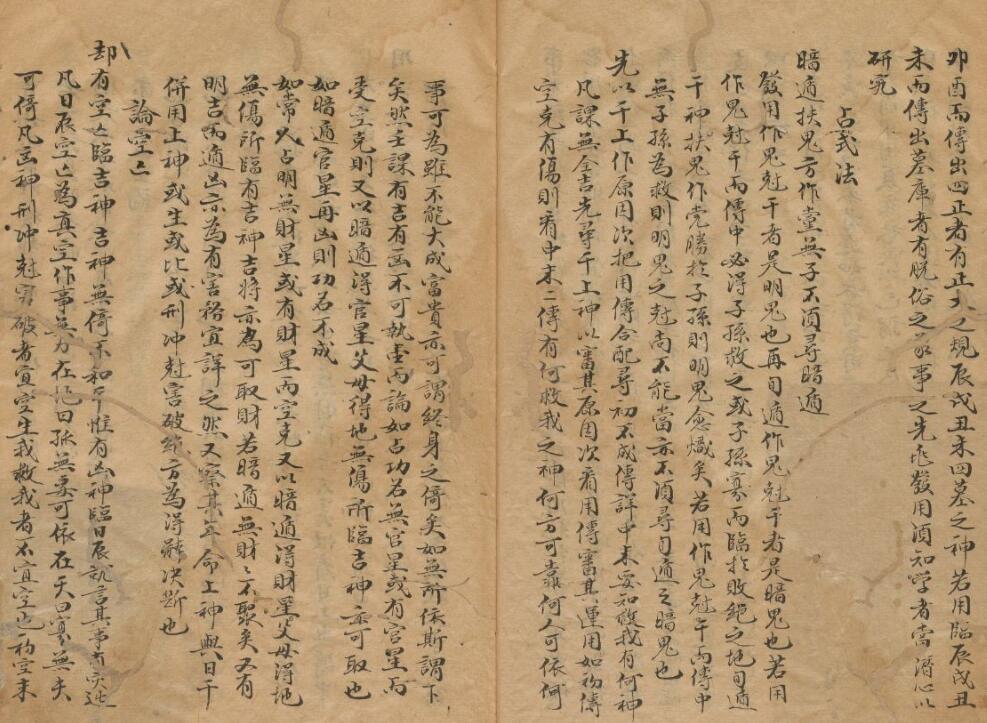 卯酉而傳出四正者有正大之規辰戌丑未四墓之神若用臨辰戌丑
未而傳出墓庫者有脱俗之事事之先兆發用須知学者當潛心以
研究
占式法
暗遁扶鬼方作党無子不須尋暗遁
發用作鬼尅干者是明鬼也再旬遁作鬼尅干者是暗鬼也若用
作鬼尅干而傳中必得子孫救之或子孫寡而臨於敗絕之地旬遁
干神扶鬼作党勝於子孫則明鬼愈熾矣若用作鬼尅干而傳中
無子孫為救則明鬼之尅尚不能當亦不須尋旬遁之暗鬼也
先以干上作原因次把用傳合配尋初不成傳詳中末要知救我有何神
凡課無全吉先尋干上神以審其原因次看用傳審其運用如初傳
空克有傷則看中末二傳有何救我之神何方可靠何人可依何
事可為雖不能大成富貴亦可謂終身之倚矣如無所依斯謂下
矣然壬課有吉有凶不可執壹而論如占功名無官星或有官星而
受空克則又以暗遁得官星父母得地無傷所臨吉神亦可取也
如暗遁官星再凶則功名不成
如常人占明無財星或有財星而空克又以暗遁得財星父母得地
無傷所臨有吉神吉將亦為可取財若暗遁無財財不聚矣又有
明吉而遁凶亦為有害務宜詳之然又察其年命上神與日干
併用上神或生或比或刑冲尅害破絕方為得訣决斷也
論空亡
却有空亡臨吉神吉神無倚不和平惟有凶神臨日辰訛言其事有災迍
凡日辰空亡為真空作事無力在地曰孤無妻可依在天曰寡無夫
可倚凡凶神刑冲尅害破者宜空生我救我者不宜空也初空末